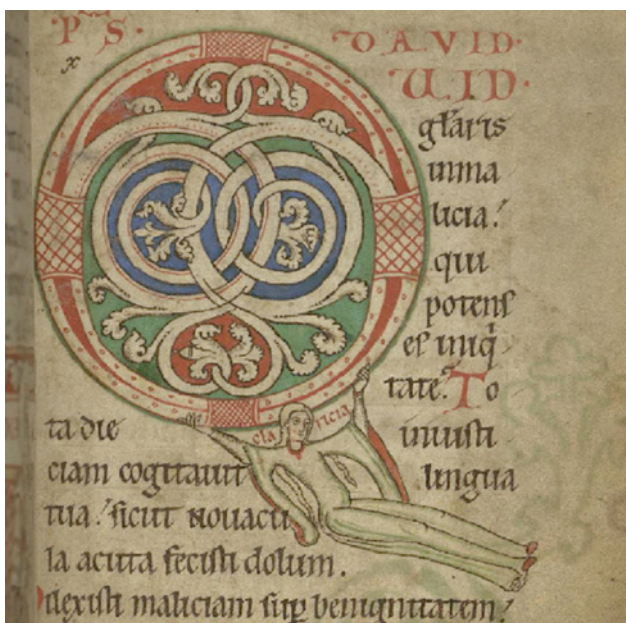 PS. DAVID.
x
QUID.
gl̄aris
inma
licia.
qui
potens
es iniq̇
tate. To
ta die iniusti
claricia
ciam cogitauit lingua
tua. sicut nouacu
la acuta fecisti dolum.
Dilexisti maliciam sup̄ benignitatem.